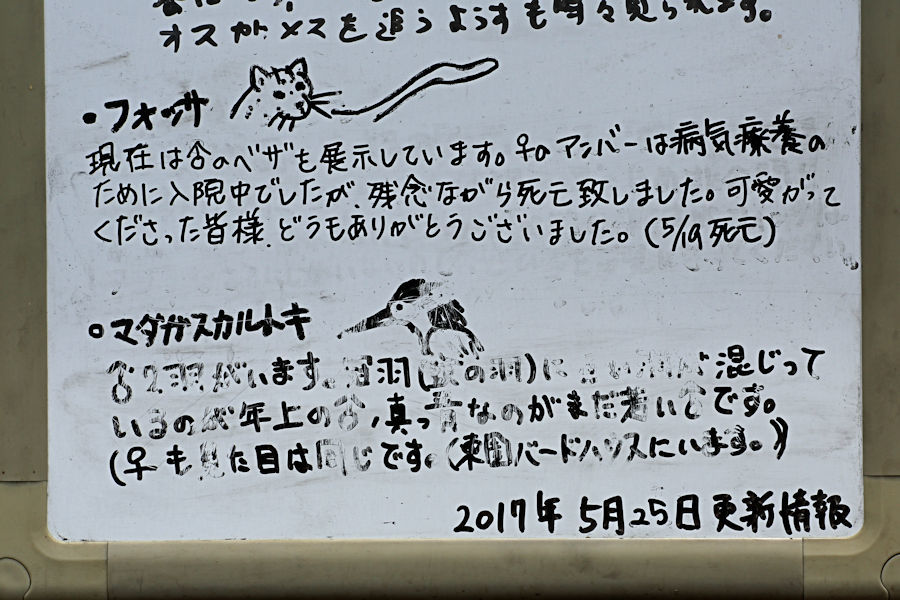 オスがメスを追うようすも時々見られます。
・フォッサ
現在は♂のベザも展示しています。♀のアンバーは病気療養の
ために入院中でしたが、残念ながら死亡致しました。可愛がって
くださった皆様、どうもありがとうございました。(5/19死亡)
・マダガスカルトキ
♂2羽がいます。冠羽(頭の羽)に 混じって
いるのが年上の♂、真っ青なのがまだ若い♂です。
(♀も見た目は同じです。(東園バードハウスにいます。))
2017年 5月25日更新情報